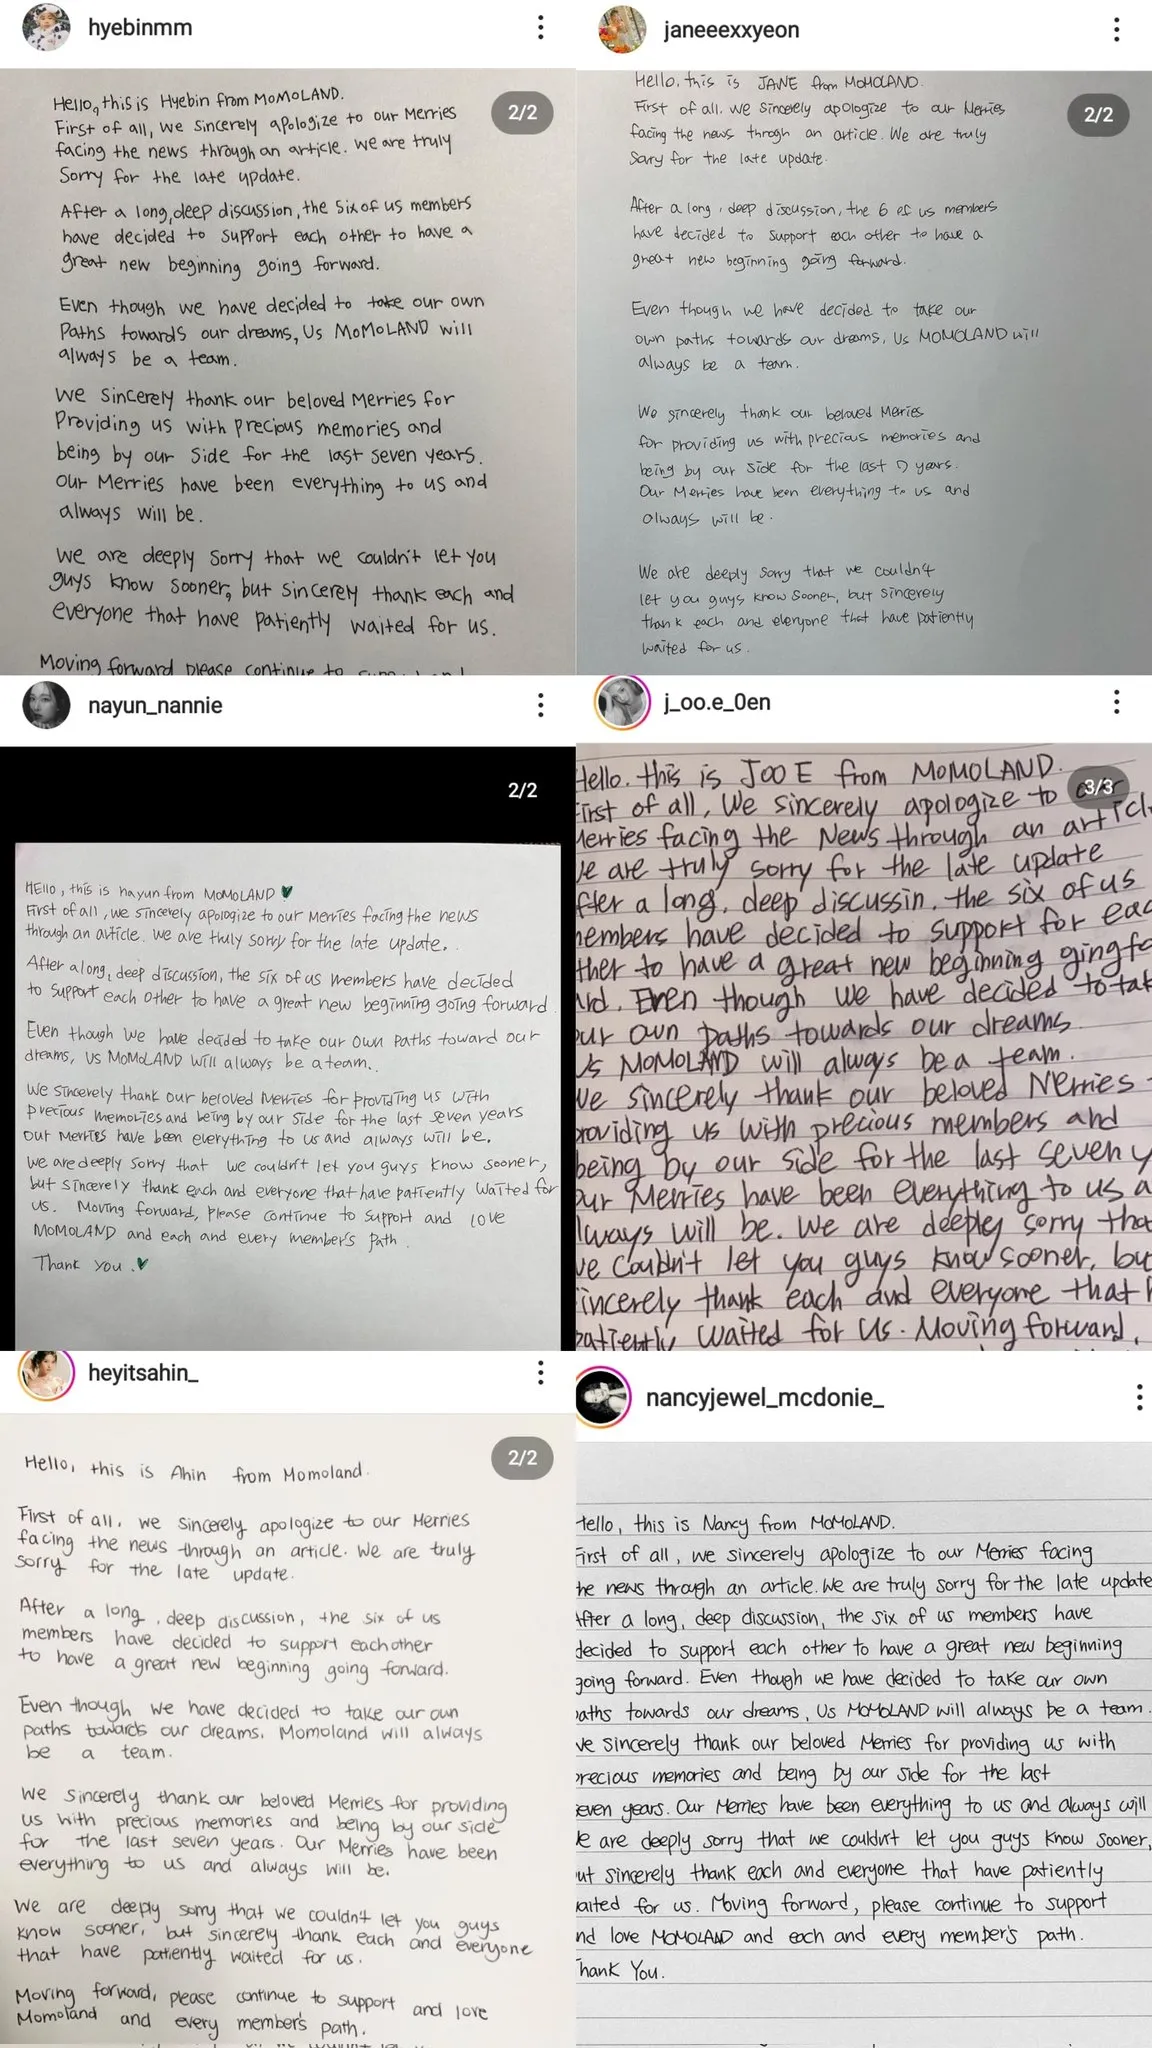 hyebinmm
2/2
Hello, this is Hyebin from MOMOLAND.
First of all, we sincerely apologize to our Merries
facing the news through an article. we are truly
Sorry for the late update.
After a long, deep discussion, the six of us members
have decided to support each other to have a
great new beginning going forward.
Even though we have decided to take our own
Paths towards our dreams, Us MOMOLAND will
always be a team.
We sincerely thank our beloved Merries for
Providing us with precious memories and
being by our Side for the last seven years.
Our Merries have been everything to us and
always will be.
We are deeply sorry that we couldn't let you
guys know sooner, but sincerely thank each and
everyone that have patiently waited for us.
Moving forward please continue to
janeeexxyeon
2/2
Hello, this is JANE from MOMOLAND.
First of all. We sincerely apologize to our Merries
facing the news throgh an article. We are truly
Sorry for the late update.
After a long, deep discussion, the 6 of us members
have decided to support each other to have a
great new beginning going forward.
Even though we have decided to take our
own paths towards our dreams, Us MOMOLAND will
always be a team.
We sincerely thank our beloved Merries
for providing us with precious memories and
being by our side for the last 7 years.
Our Merries have been everything to us and
always will be.
We are deeply sorry that we couldn't
let you guys know sooner, but sincerely
thank each and everyone that have patiently
waited for us.
nayun_nannie
2/2
Hello, this is nayun from MOMOLAND
First of all, we sincerely apologize to our Merries facing the news
through an article. We are truly sorry for the late update..
After a long, deep discussion, the six of us members have decided
to support each other to have a great new beginning going forward
Even though we have decided to take our own paths toward our
dreams, us MOMOLAND will always be a team..
We sincerely thank our beloved Merries for providing us with
precious memories and being by our side for the last seven years
our merries have been everything to us and always will be.
We are deeply sorry that we couldn't let you guys know sooner,
but sincerely thank each and everyone that have patiently waited for
us. Moving forward, please continue to support and love
MOMOLAND and each and every member's path.
Thank you.
j_oo.e_0en
3/3
Hello. this is JOOE from MOMOLAND.
First of all, We sincerely apologize to our
Merries facing the News through an articl
We are truly sorry for the late update
After a long, deep discussin, the six of us
members have decided to support for eac
ther to have a great new beginning gingfo
rd. Even though we have decided to tak
our own paths towards our dreams.
Us MOMOLAND will always be a team.
We sincerely thank our beloved Merries
providing us with precious members and
being by our side for the last seven y
our Merries have been everything to us a
lways will be. We are deeply sorry tha
we couldn't let you guys know sooner, bu
sincerely thank each and everyone that h
patiently waited for us. Moving forward,
heyitsahin_
2/2
Hello, this is Ahin from Momoland.
First of all, we sincerely apologize to our Merries
facing the news through an article. We are truly
sorry for the late update.
After a long, deep discussion, the six of us
members have decided to support each other
to have a great new beginning going forward.
Even though we have decided to take our own
paths towards our dreams, Momoland will always
be a team.
We sincerely thank our beloved Merries for providing
us with precious memories and being by our side
for the last seven years. Our Merries have been
everything to us and always will be.
We are deeply sorry that we couldn't let you guys
know sooner, but sincerely thank each and everyone
that have patiently waited for us.
Moving forward, please continue to support and love
Momoland and every member's path.
nancyjewel_mcdonie_
Hello, this is Nancy from MOMOLAND.
First of all, we sincerely apologize to our Merries facing
he news through an article. We are truly sorry for the late update
After a long, deep discussion, the six of us members have
decided to support each other to have a great new beginning
going forward. Even though we have decided to take our own
paths towards our dreams, Us MOMOLAND will always be a team.
we sincerely thank our beloved Merries for providing us with
precious memories and being by our side for the last
seven years. Our Merries have been everything to us and always will
We are deeply sorry that we couldn't let you guys know sooner,
ut sincerely thank each and everyone that have patiently
waited for us. Moving forward, please continue to support
nd love MOMOLAND and each and every member's path.
Thank You.